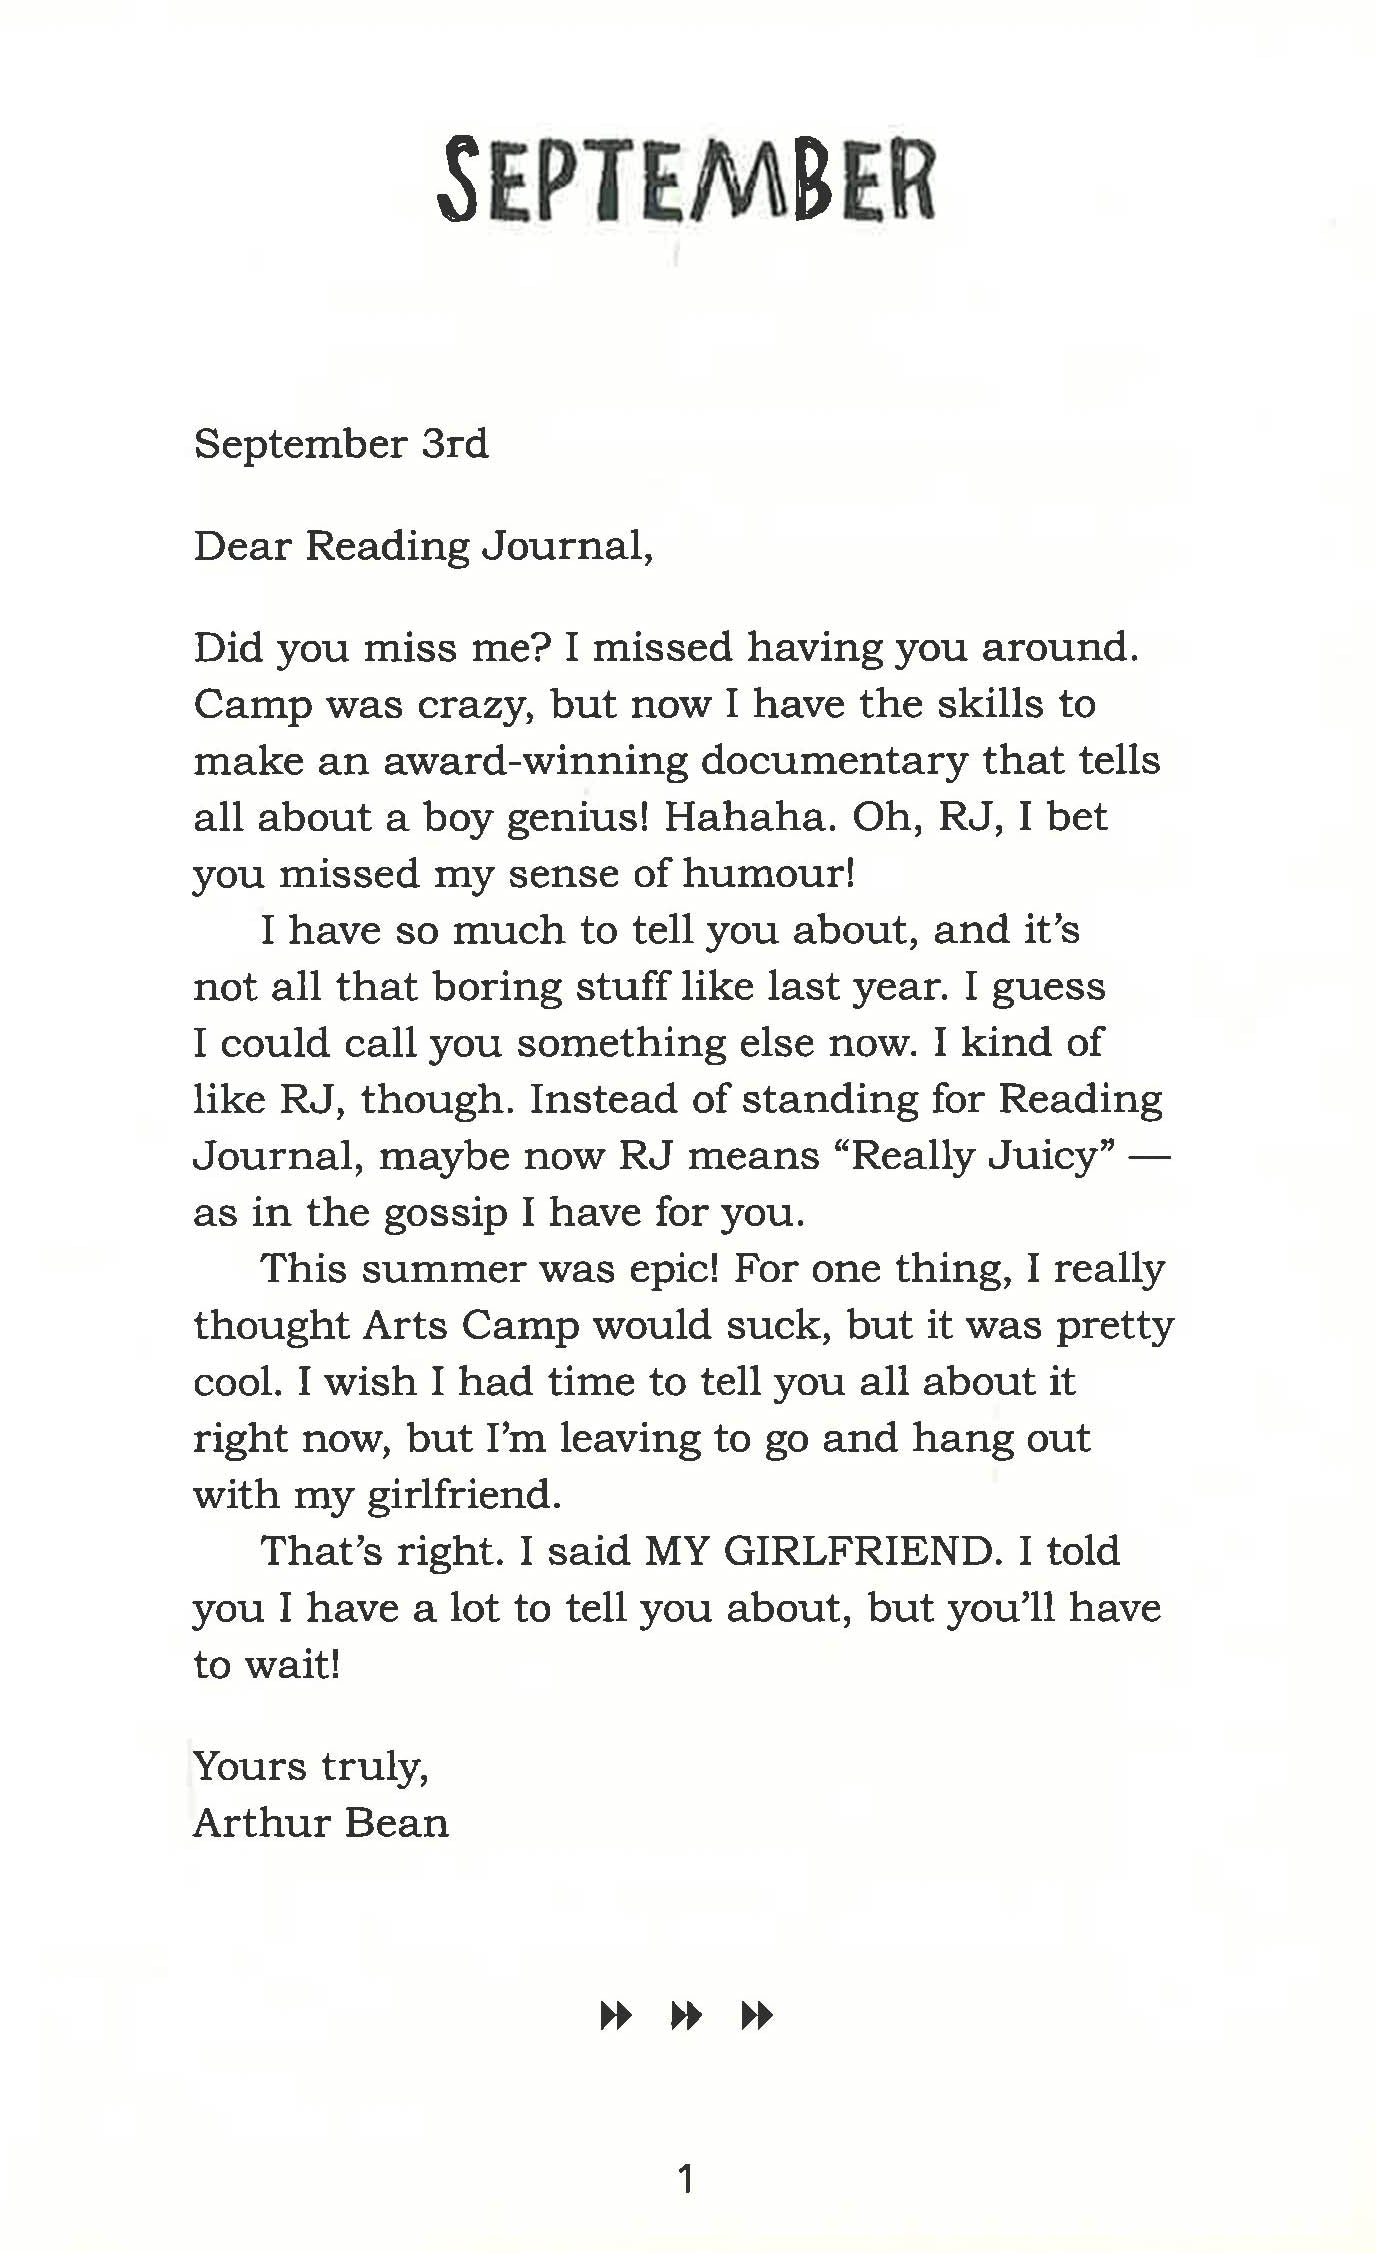 SEPTEMBER
September 3rd
Dear Reading Journal,
Did you miss me? I missed having you around.
Camp was crazy, but now I have the skills to
make an award-winning documentary that tells
all about a boy genius! Hahaha. Oh, RJ, I bet
you missed my sense of humour!
I have so much to tell you about, and it's
not all that boring stuff like last year. I guess
I could call you something else now. I kind of
like RJ, though. Instead of standing for Reading
Journal, maybe now RJ means “Really Juicy” —
as in the gossip I have for you.
This summer was epic! For one thing, I really
thought Arts Camp would suck, but it was pretty
cool. I wish I had time to tell you all about it
right now, but I'm leaving to go and hang out
with my girlfriend.
That's right. I said MY GIRLFRIEND. I told
you I have a lot to tell you about, but you'll have
to wait!
Yours truly,
Arthur Bean
1